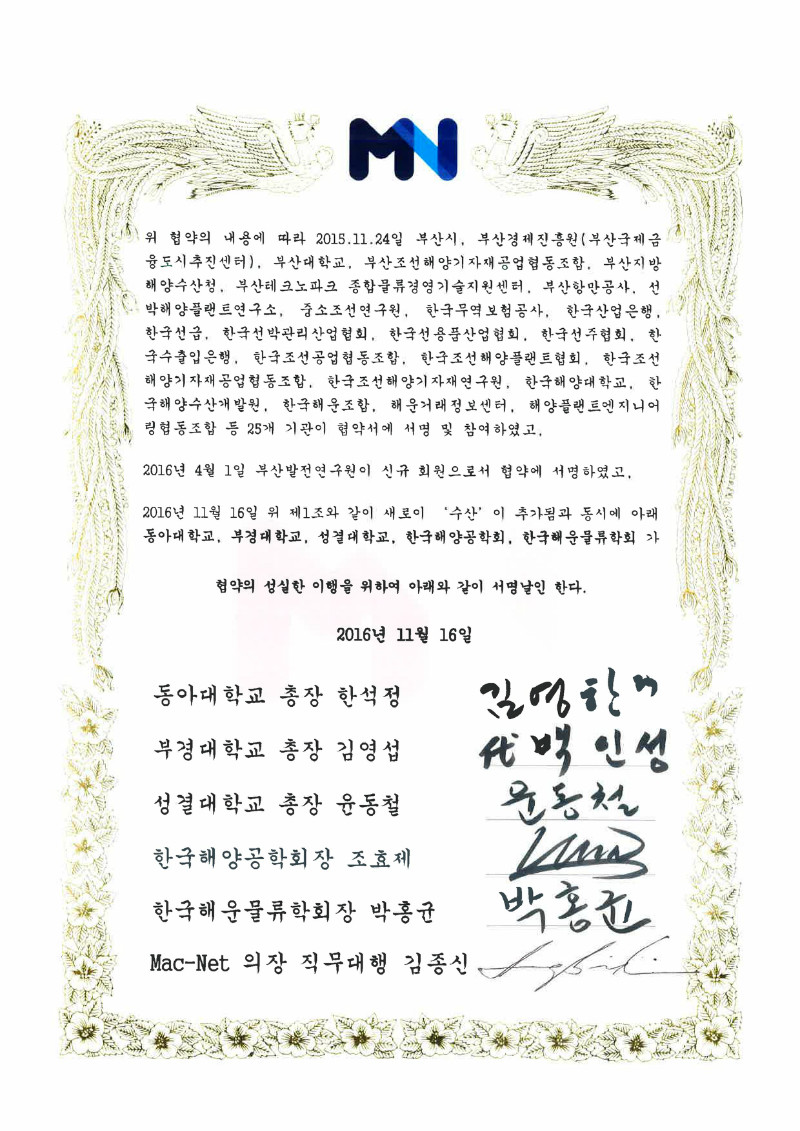 MN
위 협약의 내용에 따라 2015.11.24일 부산시, 부산경제진흥원(부산국제금
융도시추진센터), 부산대학교, 부산조선해양기자재공업협동조합, 부산지방
해양수산청, 부산테크노파크 종합물류경영기술지원센터, 부산항만공사, 선
박해양플랜트연구소, 중소조선연구원, 한국무역보험공사, 한국산업은행,
한국선급, 한국선박관리산업협회, 한국선용품산업협회, 한국선주협회, 한
국수출입은행, 한국조선공업협동조합, 한국조선해양플랜트협회, 한국조선
해양기자재공업협동조합, 한국조선해양기자재연구원, 한국해양대학교, 한
국해양수산개발원, 한국해운조합, 해운거래정보센터, 해양플랜트엔지니어
링협동조합 등 25개 기관이 협약서에 서명 및 참여하였고,
2016년 4월 1일 부산발전연구원이 신규 회원으로서 협약에 서명하였고,
2016년 11월 16일 위 제1조와 같이 새로이 '수산'이 추가됨과 동시에 아래
동아대학교, 부경대학교, 성결대학교, 한국해양공학회, 한국해운물류학회 가
협약의 성실한 이행을 위하여 아래와 같이 서명날인 한다.
2016년 11월 16일
동아대학교 총장 한석정 김영한
부경대학교 총장 김영섭 代 백인성
성결대학교 총장 윤동철 윤동철
한국해양공학회장 조효제
한국해운물류학회장 박홍균 박홍균
Mac-Net 의장 직무대행 김종신